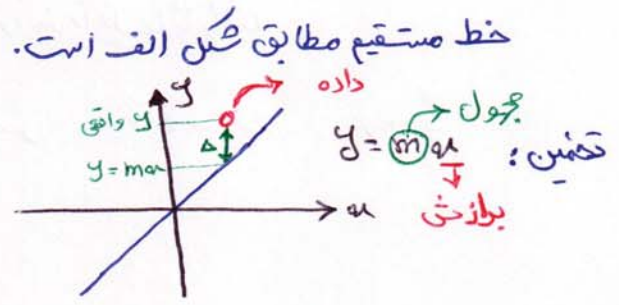 خط مستقیم مطابق شکل الف است.
y
داده
y واقعی
Δ
y = mx
x
مجهول
تخمین: y = mx
برازش